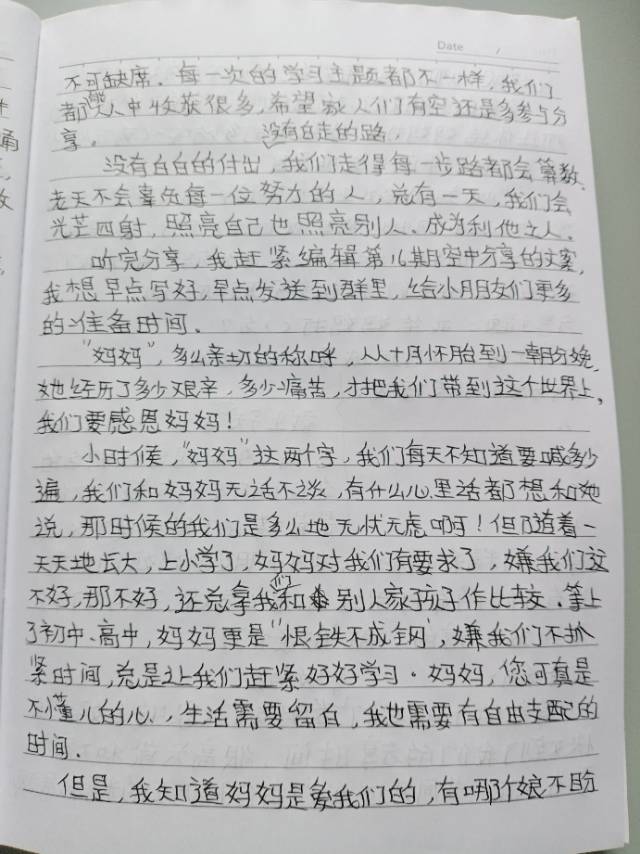 Date /
不可缺席。每一次的学习主题都不一样，我们
都能从中收获很多，希望家人们有空还是多参与分
享。 没有白走的路，
没有白白的付出，我们走得每一步路都会算数，
老天不会辜负每一位努力的人，总有一天，我们会
光芒四射，照亮自己也照亮别人、成为利他之人。
听完分享，我赶紧编辑第儿期空中分享的文案，
我想早点写好，早点发送到群里，给小朋友们更多
的准备时间。
"妈妈"，多么亲切的称呼，从十月怀胎到一朝分娩，
她经历了多少艰辛，多少痛苦，才把我们带到这个世界上，
我们要感恩妈妈！
小时候，"妈妈"这两个字，我们每天不知道要喊多少
遍，我们和妈妈无话不谈，有什么心里话都想和她
说，那时候的我们是多么地无忧无虑啊！但随着一
天天地长大，上小学了，妈妈对我们有要求了，嫌我们这
不好，那不好，还总拿我们和别人家孩子作比较。等上
了初中、高中，妈妈更是"恨铁不成钢"，嫌我们不抓
紧时间，总是让我们赶紧好好学习。妈妈，您可真是
不懂儿的心，生活需要留白，我也需要有自由支配的
时间。
但是，我知道妈妈是爱我们的，有哪个娘不盼